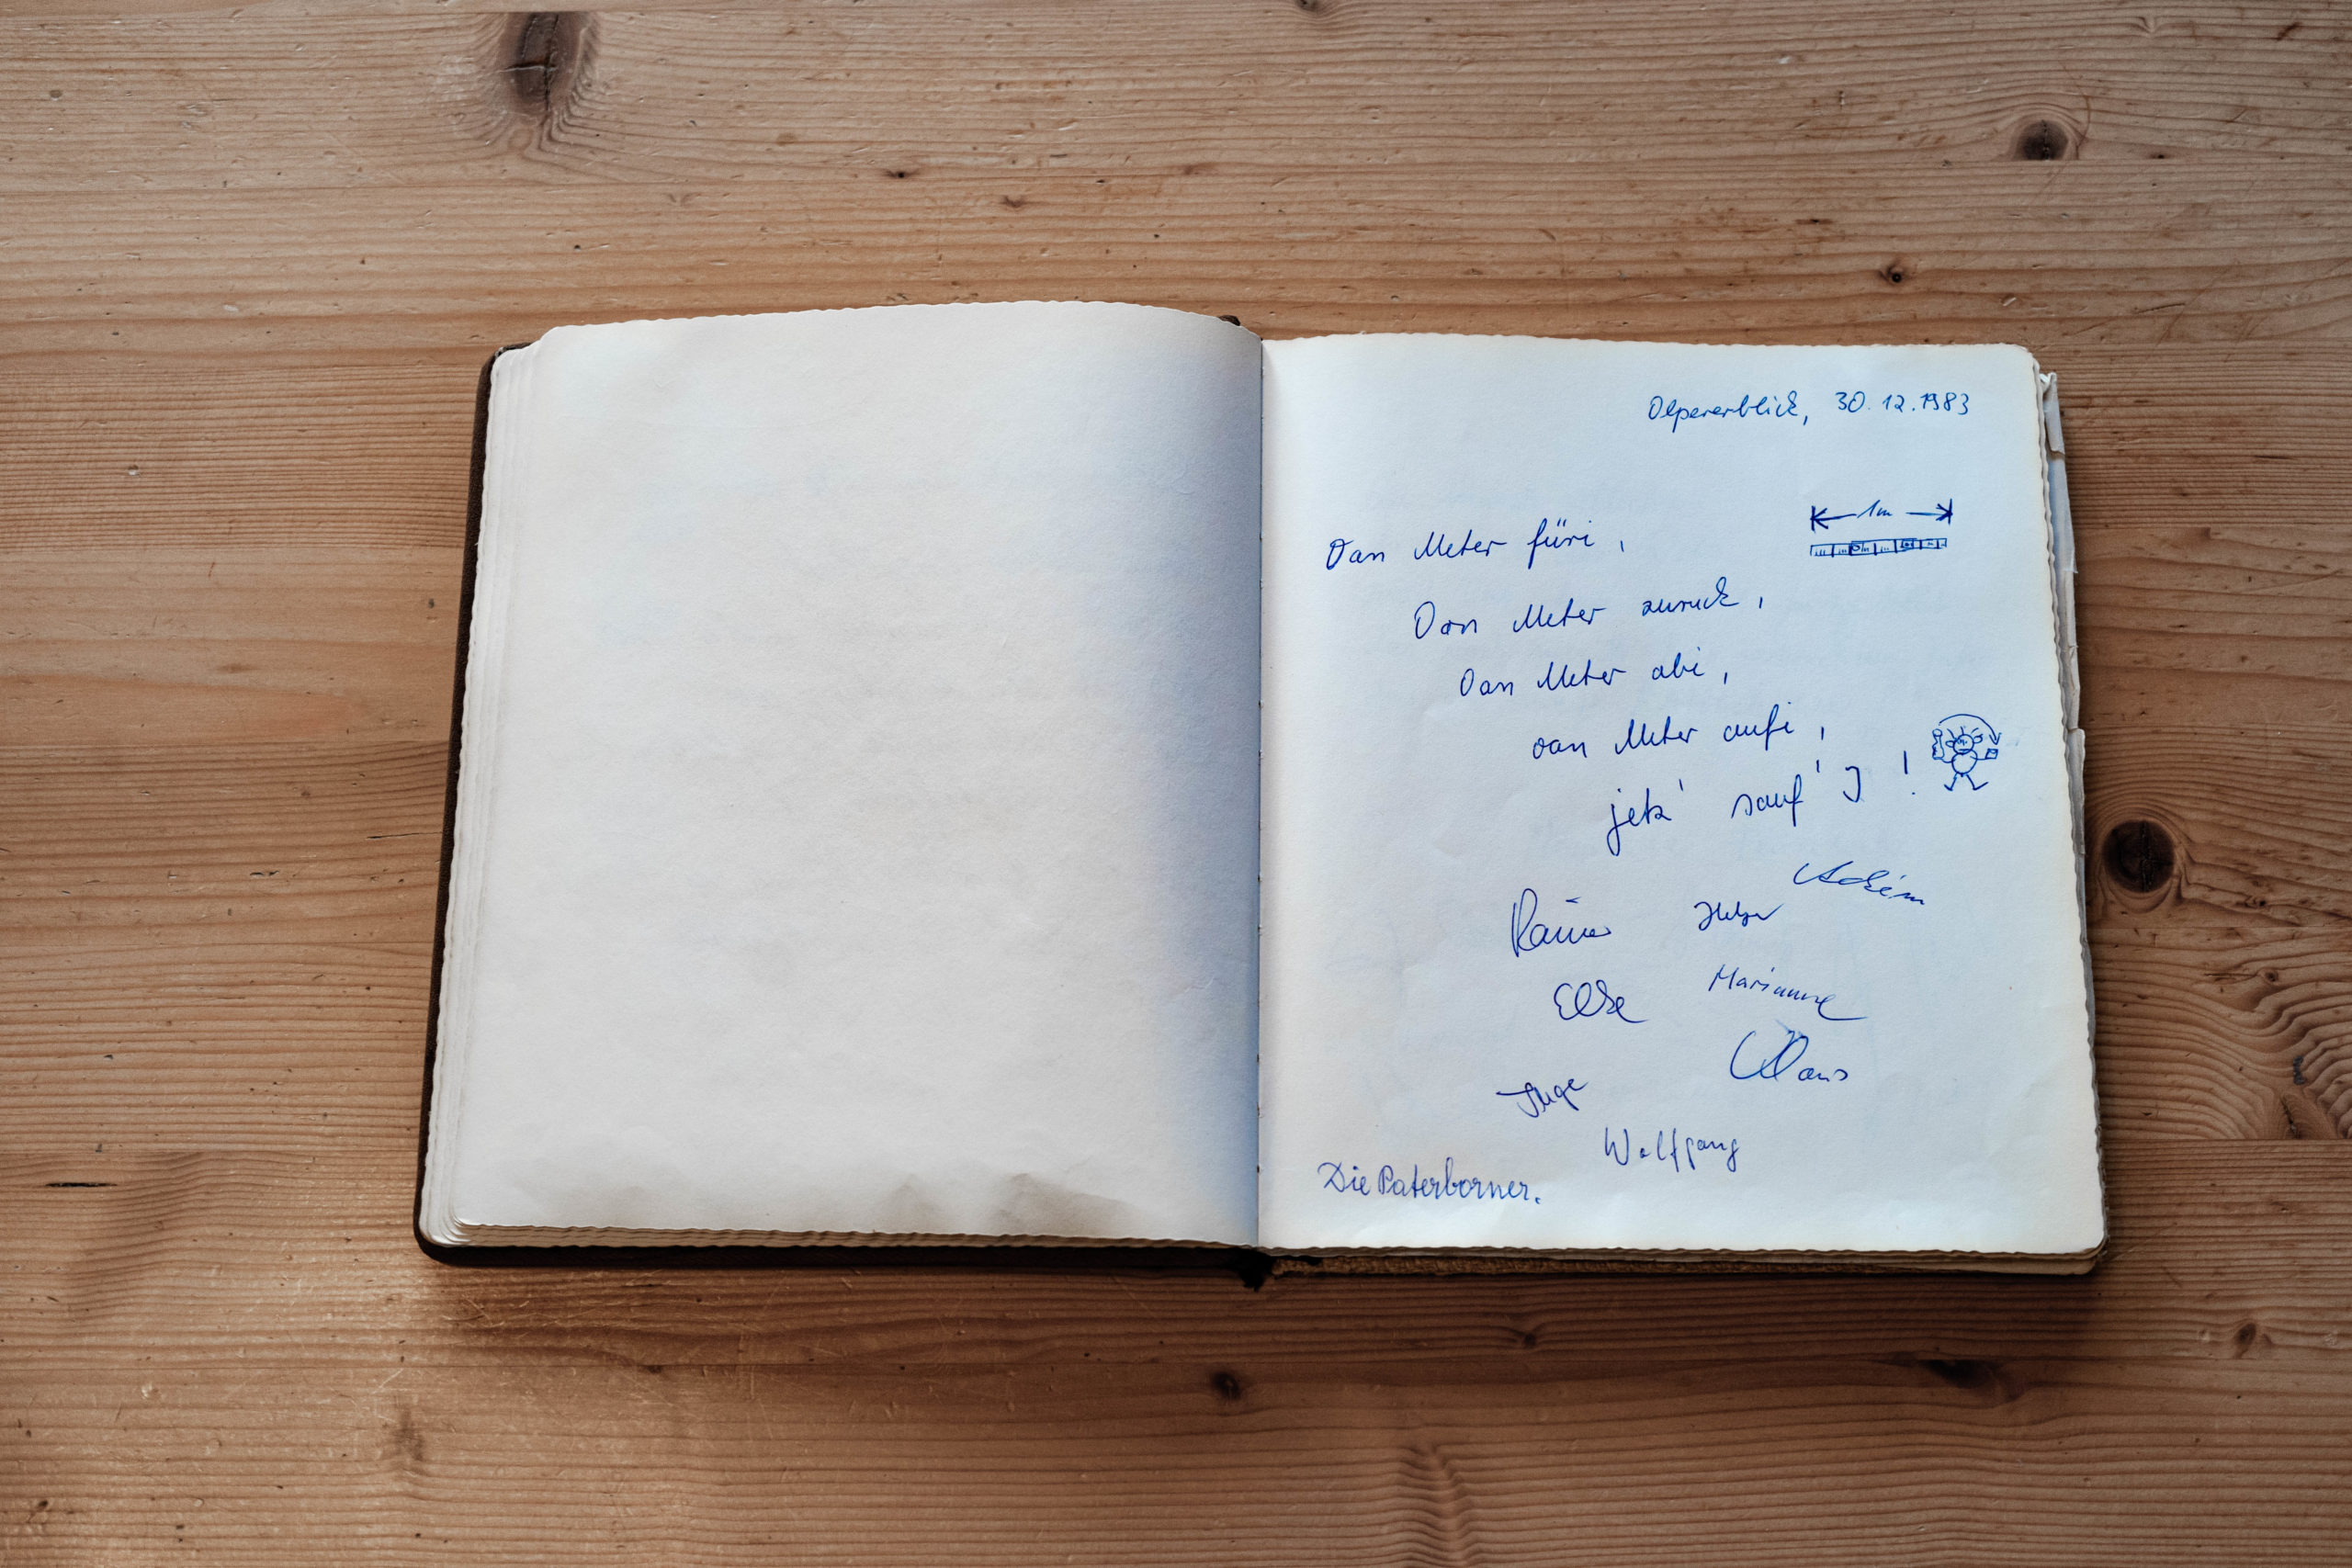 Olpererblick, 30.12.1983
1m
Oan Meter füri,
Oan Meter zurück,
Oan Meter abi,
oan Meter aufi,
jetz' sauf' I!
Achim
Rainer
Else Marianne
Klaus
Inge
Wolfgang
Die Paterborner.